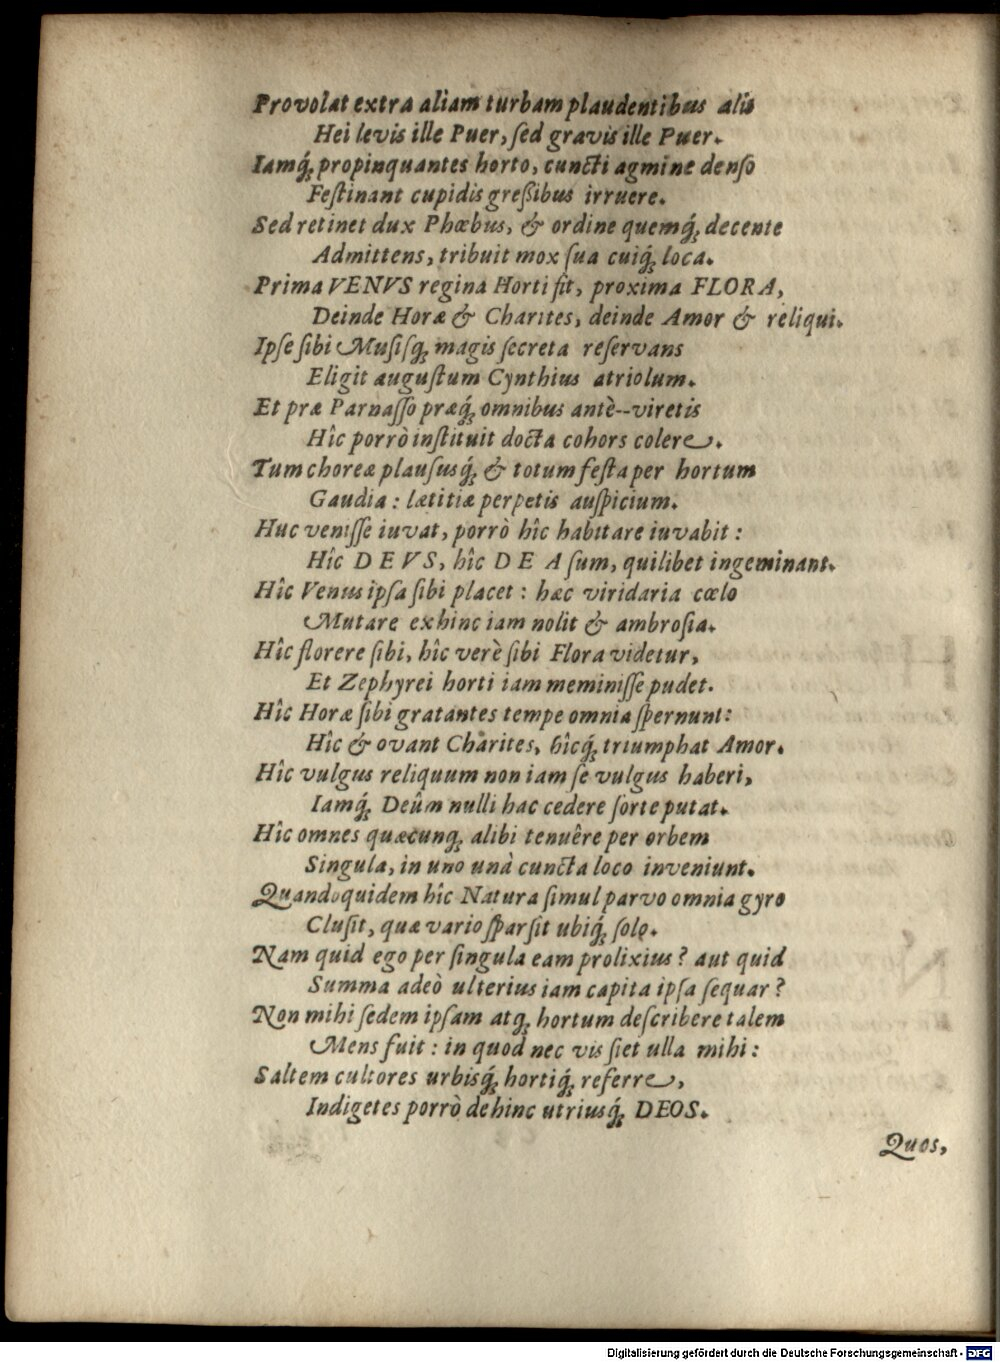 Provolat extra aliam turbam plaudentibus alis
Hei levis ille Puer, ſed gravis ille Puer.
Iamq́; propinquantes horto, cuncti agmine denſo
Feſtinant cupidis greßibus irruere.
Sed retinet dux Phœbus, & ordine quemq́; decente
Admittens, tribuit mox ſua cuiq́; loca.
Prima VENVS regina Horti ſit, proxima FLORA,
Deinde Horæ & Charites, deinde Amor & reliqui.
Ipſe ſibi Muſiſq́; magis ſecreta reſervans
Eligit auguſtum Cynthius atriolum.
Et præ Parnaſſo præq́; omnibus antè--viretis
Hîc porrò inſtituit docta cohors colere.
Tum choreæ plauſusq́; & totum feſta per hortum
Gaudia: lætitiæ perpetis auſpicium.
Huc veniſſe iuvat, porrò hîc habitare iuvabit:
Hîc DEVS, hîc DEA ſum, quilibet ingeminant.
Hîc Venus ipſa ſibi placet: hæc viridaria cœlo
Mutare exhinc iam nolit & ambroſia.
Hîc florere ſibi, hîc verè ſibi Flora videtur,
Et Zephyrei horti iam meminiſſe pudet.
Hîc Horæ ſibi gratantes tempe omnia ſpernunt:
Hîc & ovant Charites, hîcq́; triumphat Amor.
Hîc vulgus reliquum non iam ſe vulgus haberi,
Iamq́; Deûm nulli hac cedere ſorte putat.
Hîc omnes quæcunq; alibi tenuêre per orbem
Singula, in uno unà cuncta loco inveniunt.
Quandoquidem hîc Natura ſimul parvo omnia gyro
Cluſit, quæ vario ſparſit ubiq́; ſolo.
Nam quid ego per ſingula eam prolixius? aut quid
Summa adeò ulterius iam capita ipſa ſequar?
Non mihi ſedem ipſam atq; hortum deſcribere talem
Mens fuit: in quod nec vis ſiet ulla mihi:
Saltem cultores urbisq́; hortiq́; referre,
Indigetes porrò dehinc utriusq́; DEOS.
Quos,
Digitalisierung gefördert durch die Deutsche Forschungsgemeinschaft - DFG